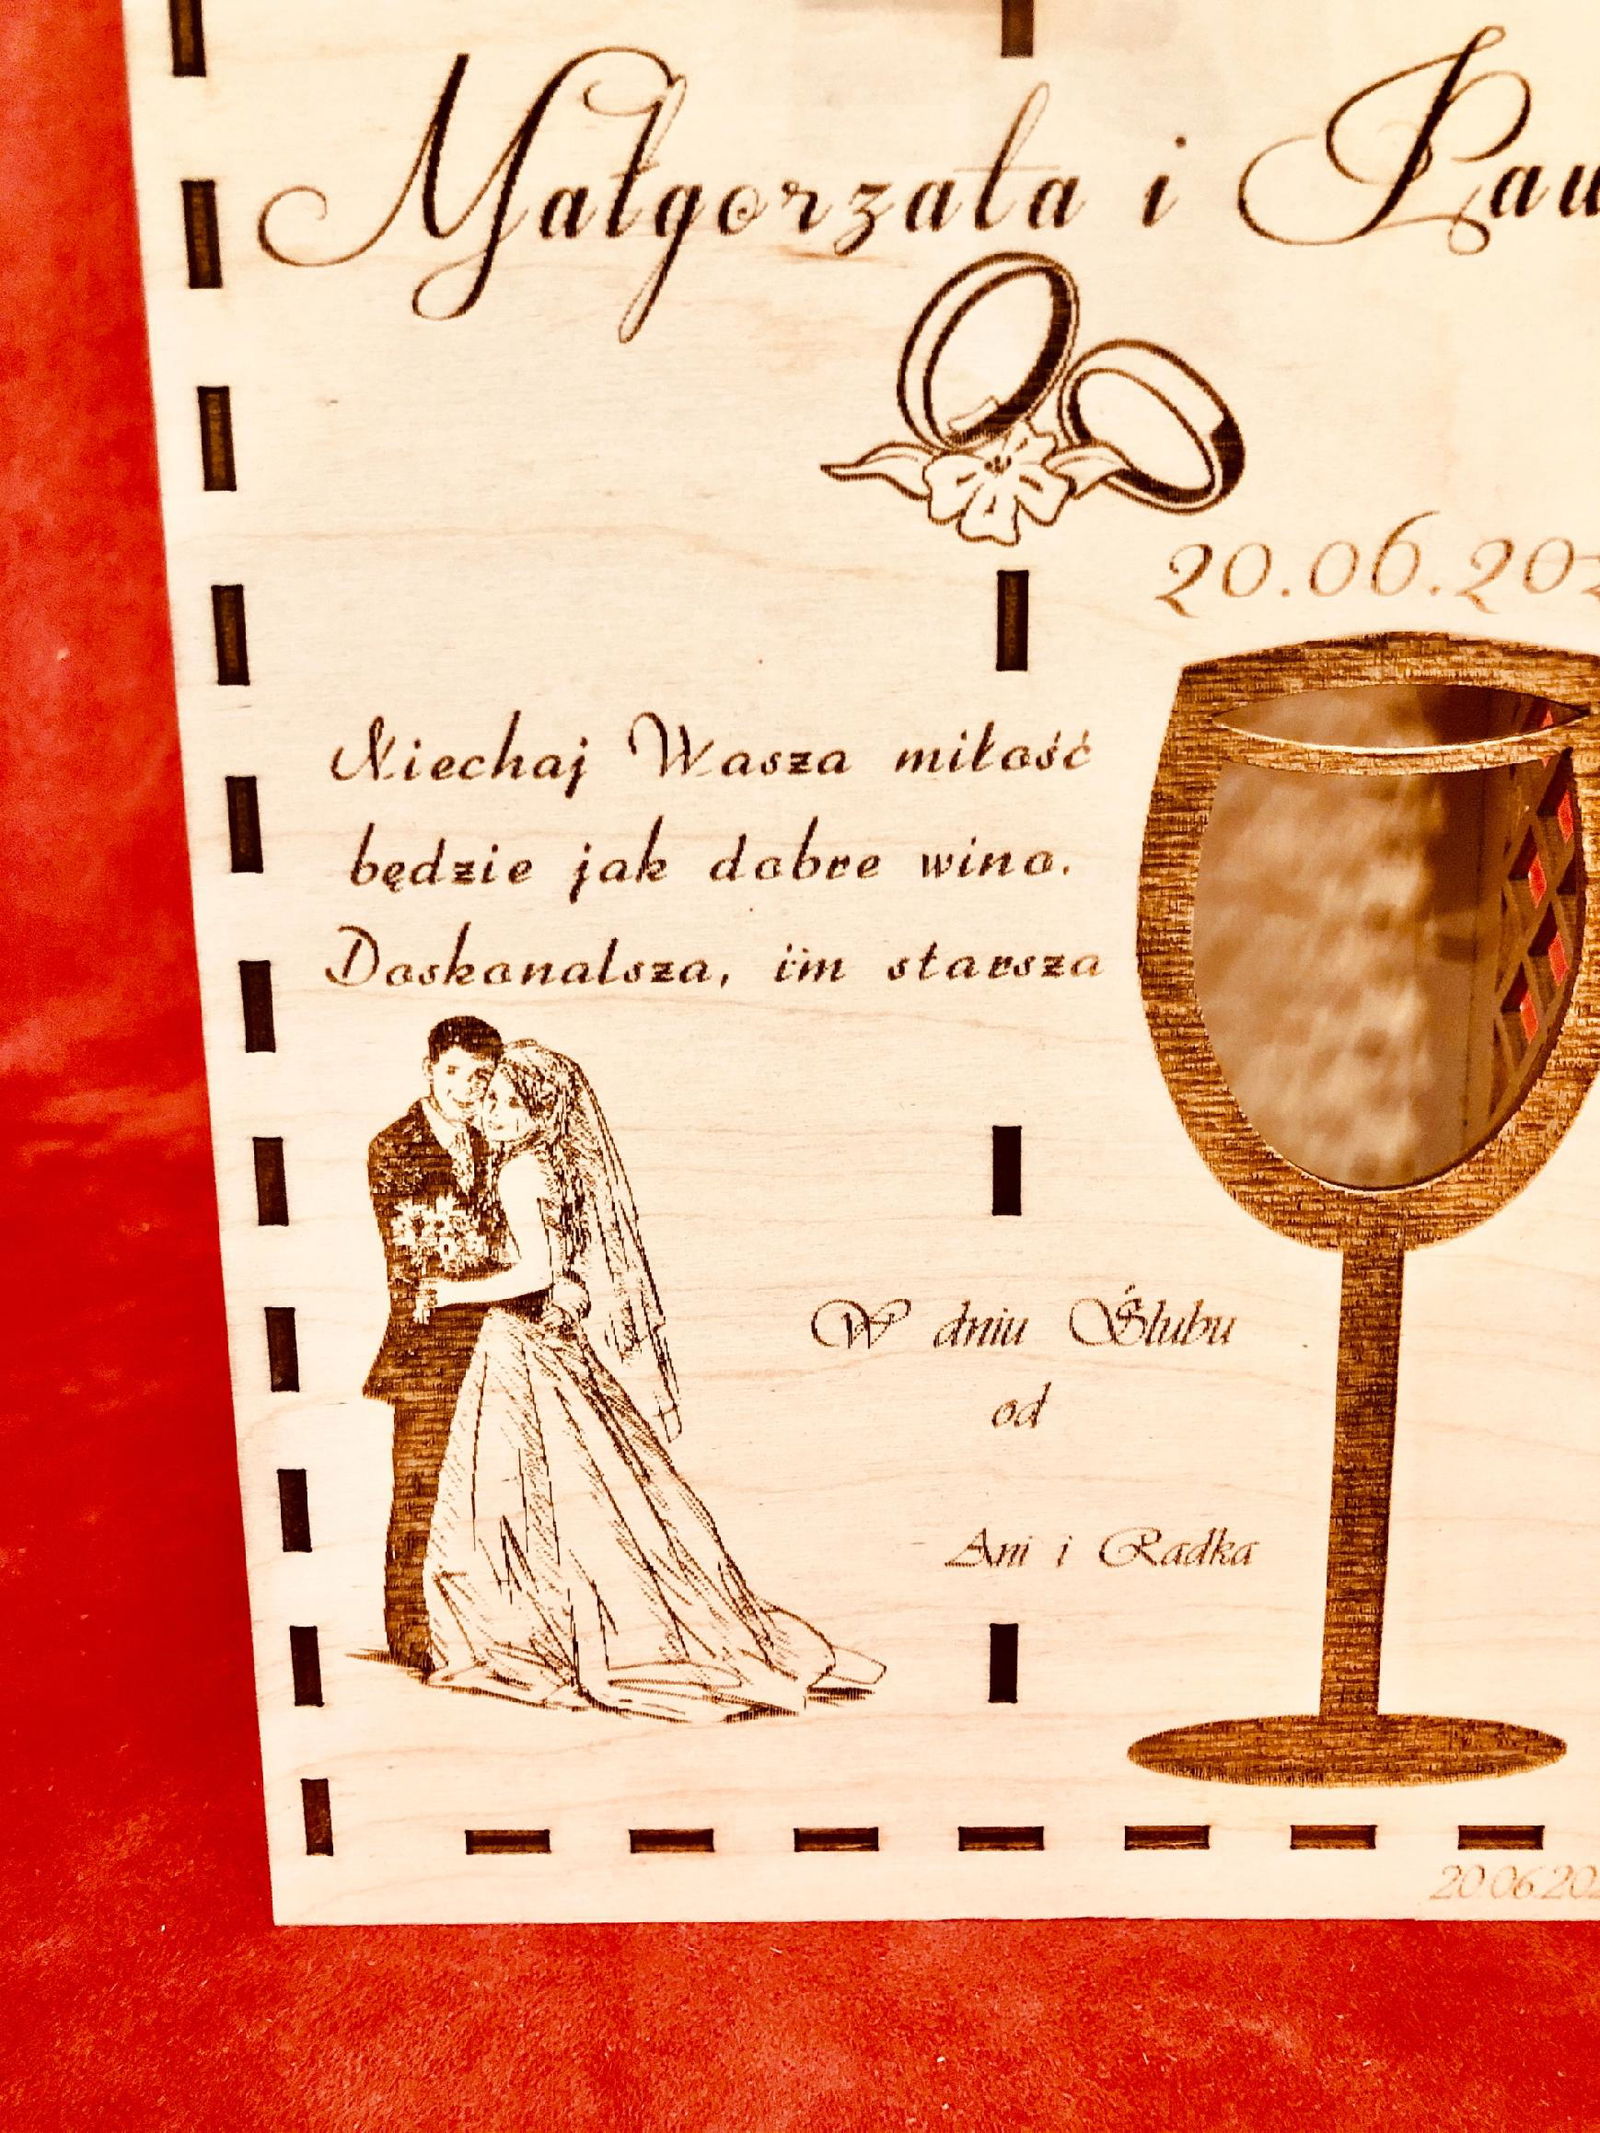 Małgorzata i Pau
20.06.202
Niechaj Wasza miłość
będzie jak dobre wino.
Doskonalsza, im starsza
W dniu Ślubu
od
Ani i Radka
20.06.202